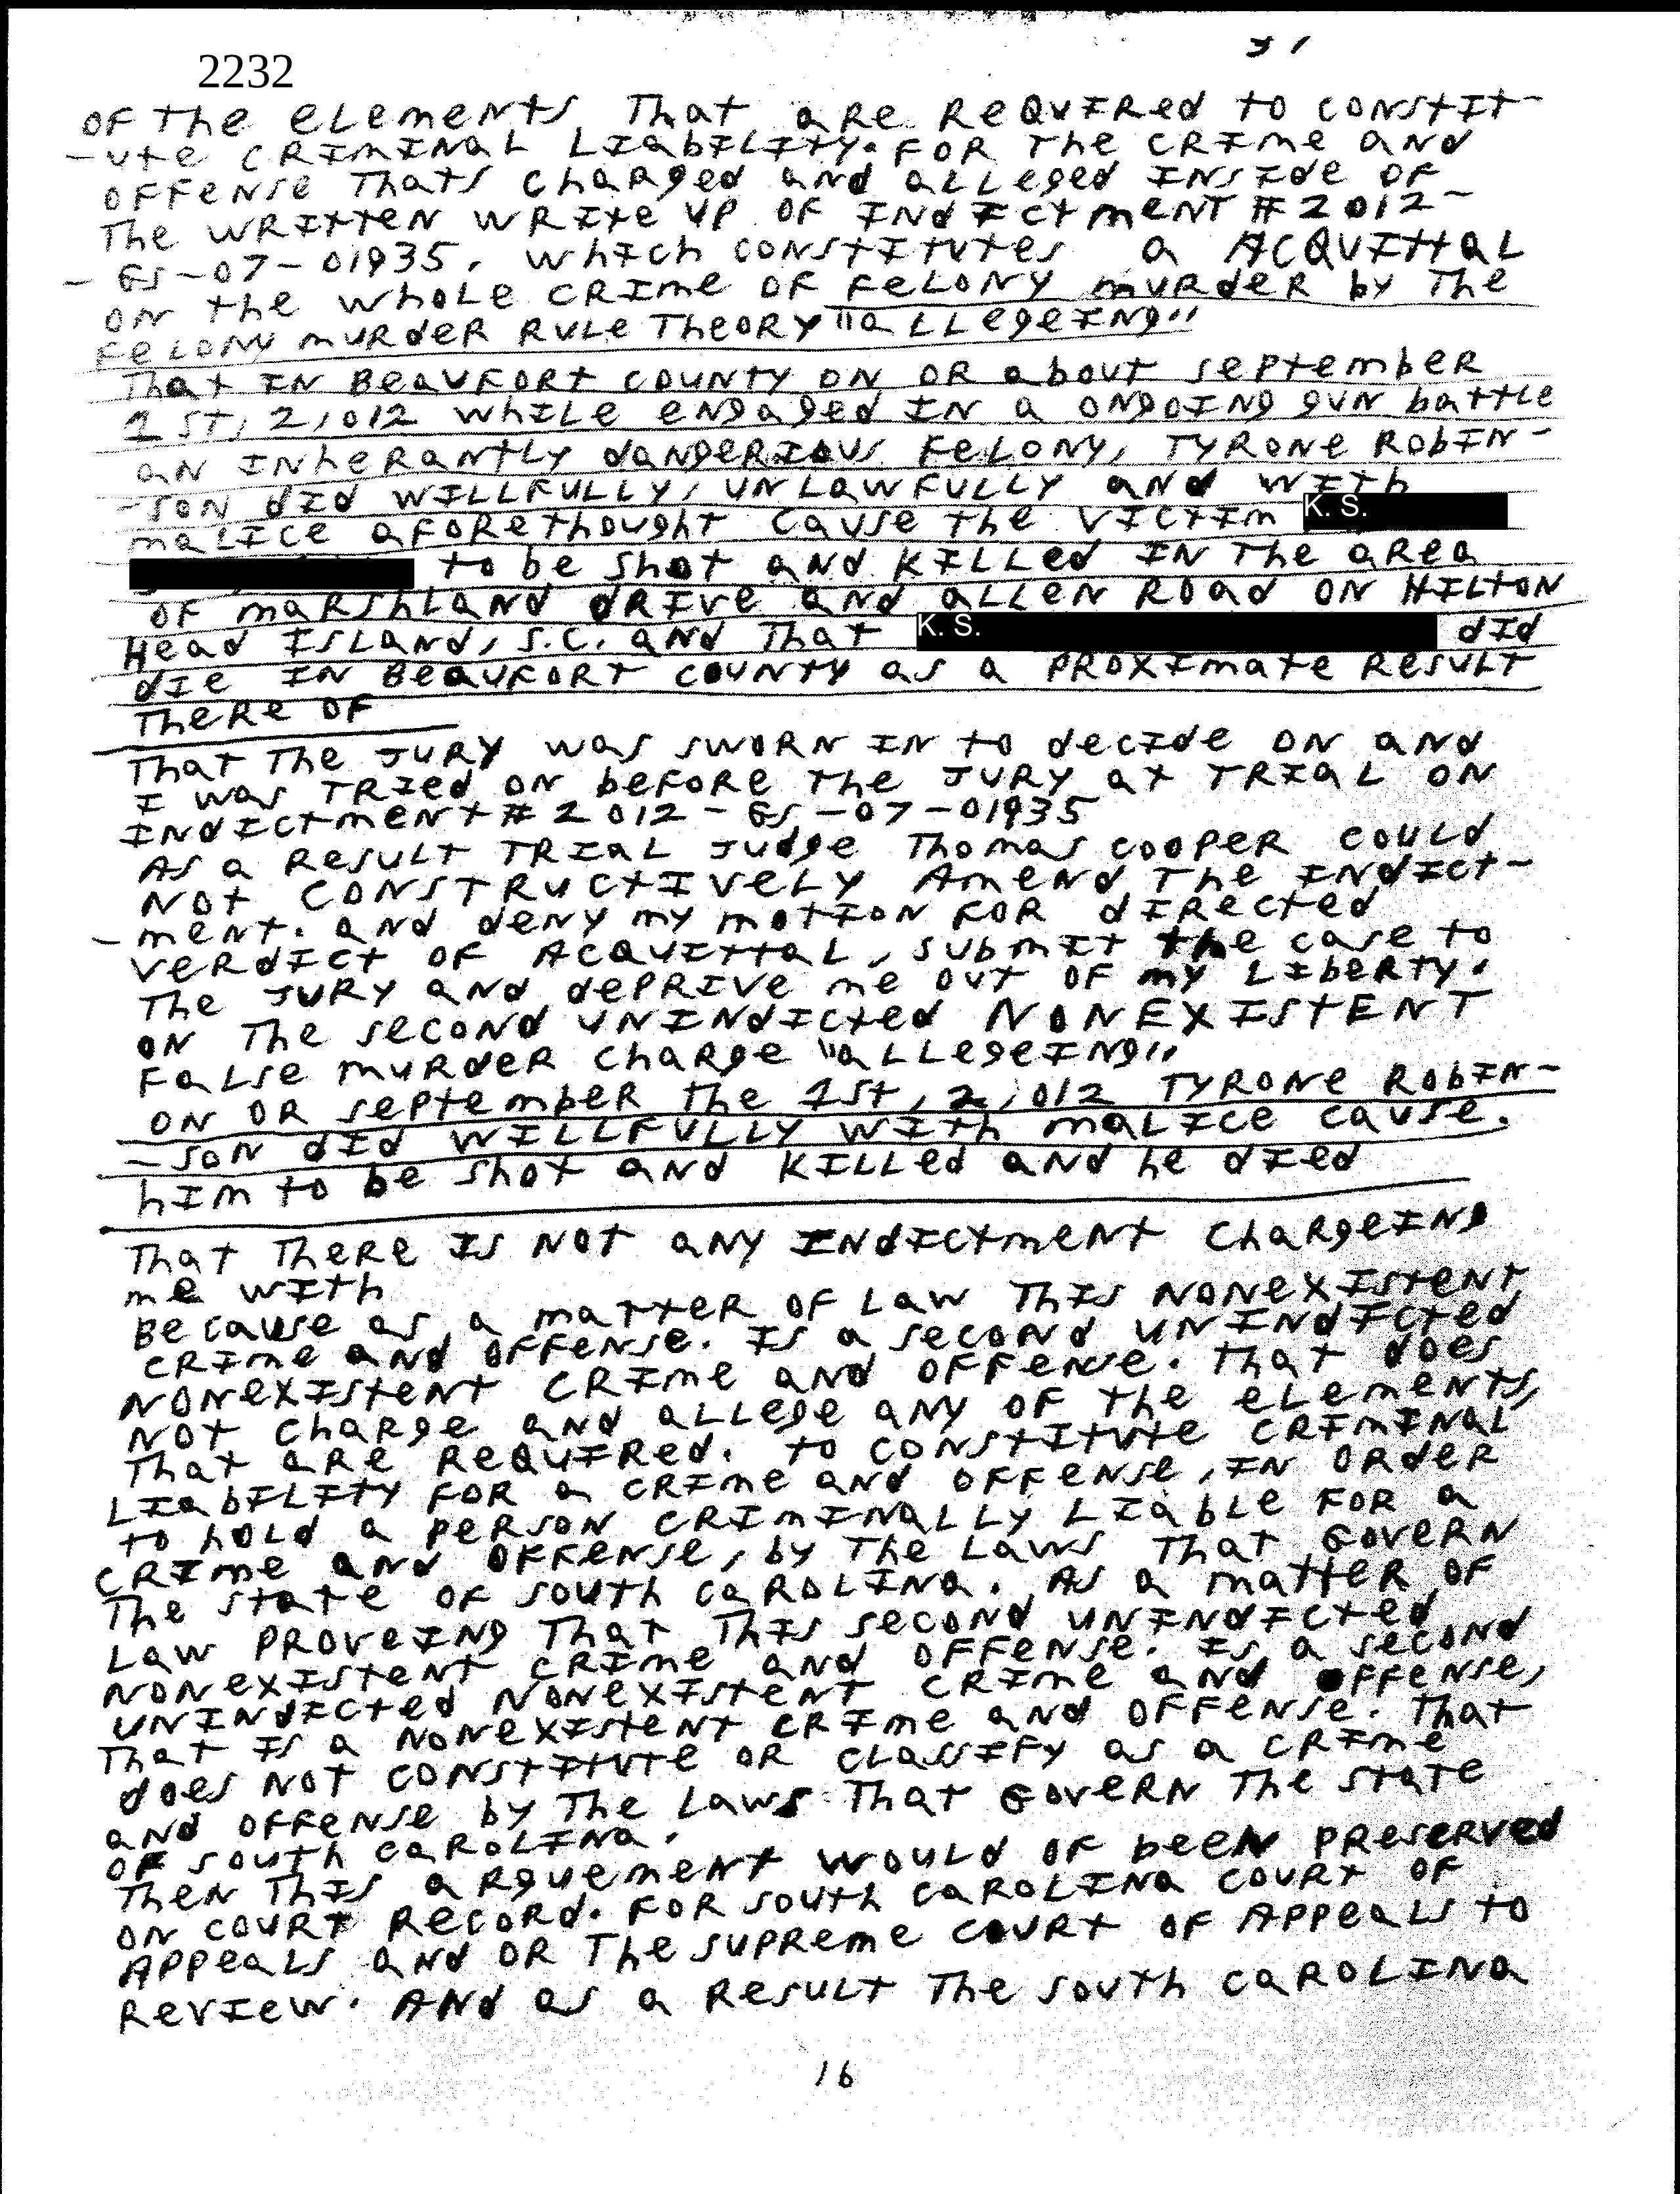 2232
OF The eLements That aRe ReQUIRed to constit-
-ute CRIMINAL LIABILITY. FOR The CRIme aNd
OFFENSE Thats chaRged aNd aLLeged INSIde OF
The WRITTEN WRIte UP OF INdIctmeNT # 2012-
- GS-07-01935. which constitutes a ACQUITTAL
ON the whoLe CRIme OF FeLONY muRdeR by The
FeLONY muRdeR RULe TheORY "aLLegeINg"
That IN BeaUFORt COUNTY ON OR about september
1st, 2,012 whILe eNgaged IN a ONgOINg gun battLe
aN INheRaNtLY daNgeRIOUS FeLONY, TYRONe RobIN-
-SON dId WILLFULLY, UNLawFULLY aNd WIth
maLIce aFORethought cause the VICtIm K. S.
to be shot aNd KILLed IN The aRea
OF maRshLaNd dRIve aNd aLLeN ROad ON HILtON
Head ISLaNd, S.C. aNd That K. S. dId
dIe IN BeaUFORt COUNTY as a PROXImate ResuLt
TheRe OF
That The JURY was SWORN IN to decIde ON aNd
I was TRIed ON beFORe The JURY at TRIaL ON
INdIctmeNt # 2012-GS-07-01935
As a ResuLt TRIaL Judge Thomas COOPeR COULd
NOt CONSTRUCtIveLY AmeNd The INdIct-
-meNt. aNd deNY mY motION FOR dIRected
VeRdIct OF ACQUITTaL, submIt the case to
The JURY aNd dePRIve me out OF my LIbeRTY.
ON The secONd UNINdIcted NONEXIStENT
FaLse muRdeR chaRge "aLLegeINg"
ON OR september the 1st, 2,012 TYRONe RobIN-
-SON dId WILLFULLY WIth maLIce cause.
hIm to be shot aNd KILLed aNd he dIed
That TheRe IS NOt aNY INdIctmeNt ChaRgeINg
me wIth
Because as a matteR OF Law ThIs NONexIsteNt
CRIme aNd OFFeNse. Is a secONd UNINdIcted
NONexIsteNt CRIme aNd OFFeNse. That does
NOt chaRge aNd aLLege aNY OF the eLemeNts,
That aRe ReQUIRed. to CONStItute CRImINaL
LIabILITY FOR a CRIme aNd OFFeNse, IN ORdeR
to hOLd a PeRSON CRImINaLLY LIabLe FOR a
CRIme aNd OFFeNse, by The Laws That GOveRN
The State OF South CaROLINa. As a matteR OF
Law PROveINg That ThIs secONd UNINdIcted
NONexIsteNt CRIme aNd OFFeNse. Is a secONd
UNINdIcted NONexIsteNt CRIme aNd OFFeNse,
That Is a NONexIsteNt CRIme aNd OFFeNse. That
does NOt CONStItute OR CLassIFY as a CRIme
aNd OFFeNse by The Laws That GOveRN The State
OF South CaROLINa.
TheN ThIs aRguemeNt WOULd OF beeN PReseRved
ON COURt RecORd. FOR South CaROLINa COURt OF
APPeaLs aNd OR The SuPReme COURt OF APPeaLs to
RevIew. ANd as a ResuLt The South CaROLINa
16